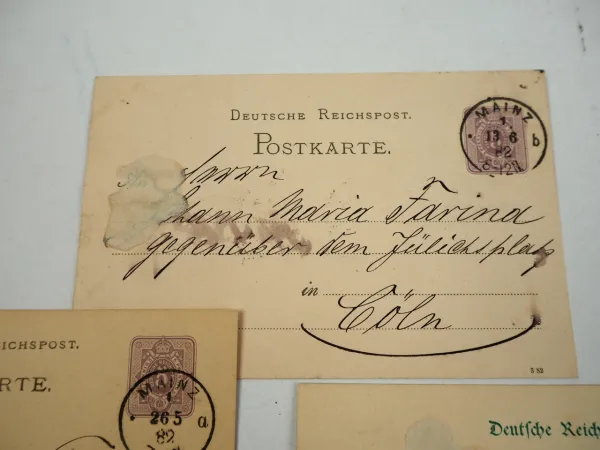 DEUTSCHE REICHSPOST.
POSTKARTE.
MAINZ
1
13 6
b
82
8-12V
Herrn
hann Maria Farina
gegenüber dem Jülichsplatz
in Cöln
S 82
EICHSPOST.
ARTE.
MAINZ
1
26 5
a
82
Deutsche Reich